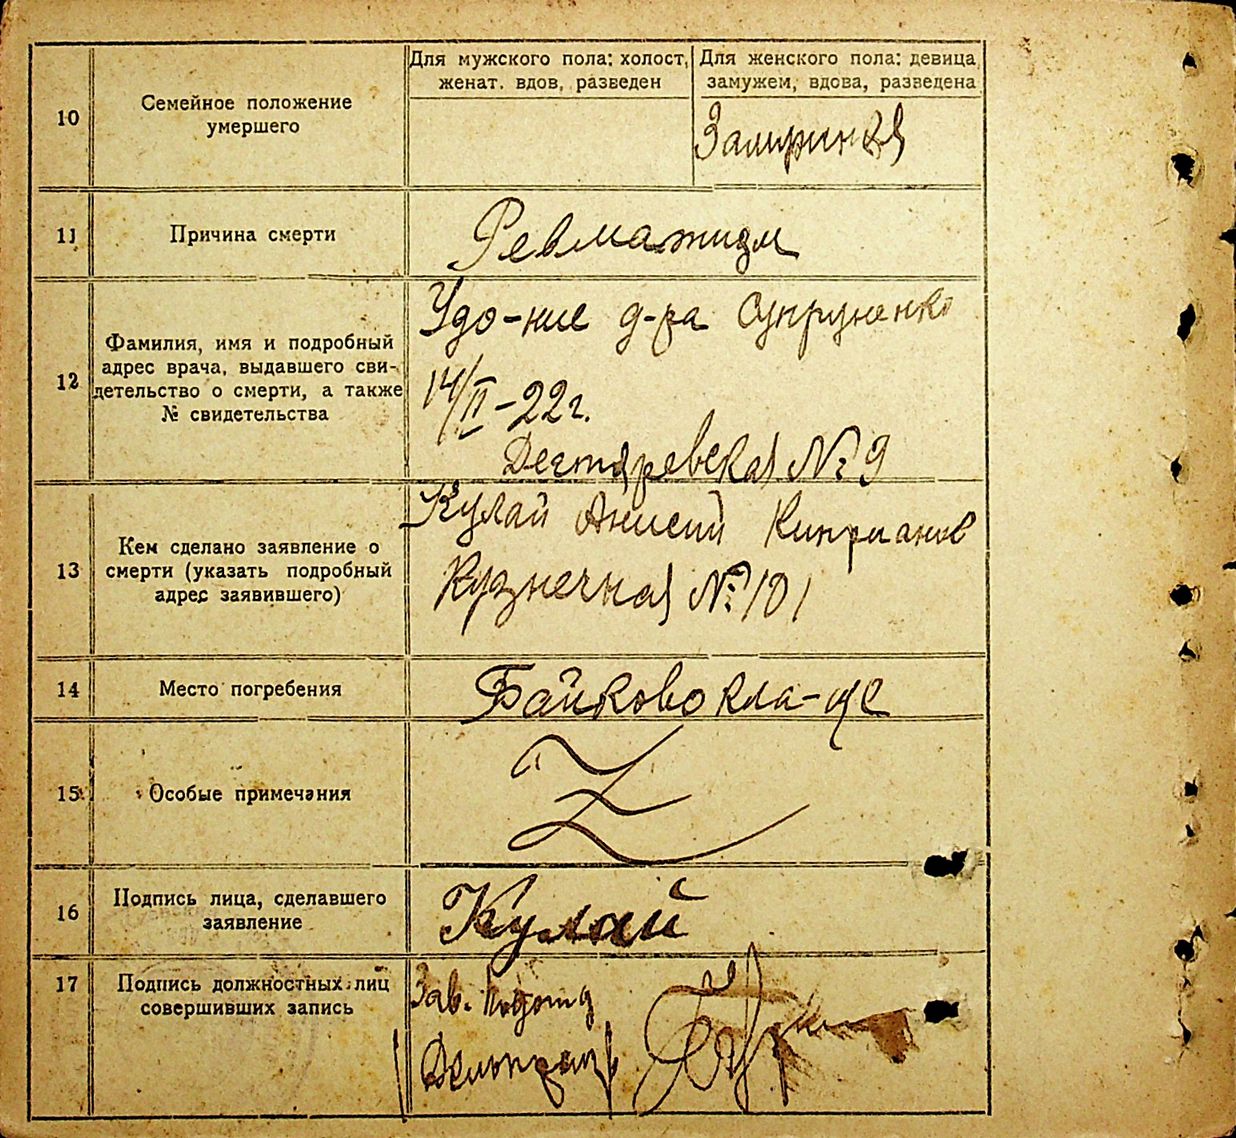 10
Семейное положение
умершего
Для мужского пола: холост,
женат. вдов, разведен
Для женского пола: девица,
замужем, вдова, разведена
11
Причина смерти
Ревматизм
12
Фамилия, имя и подробный
адрес врача, выдавшего сви-
детельство о смерти, а также
№ свидетельства
Удо-ние д-ра Супруненко
14/II-22г.
Дегтяревская № 9
13
Кем сделано заявление о
смерти (указать подробный
адрес заявившего)
Кулай Анисий Киприанов
Кузнечная № 101
14
Место погребения
Байково кла-ще
15
Особые примечания
Z
16
Подпись лица, сделавшего
заявление
Кулай
17
Подпись должностных лиц
совершивших запись
Зав. Подотд